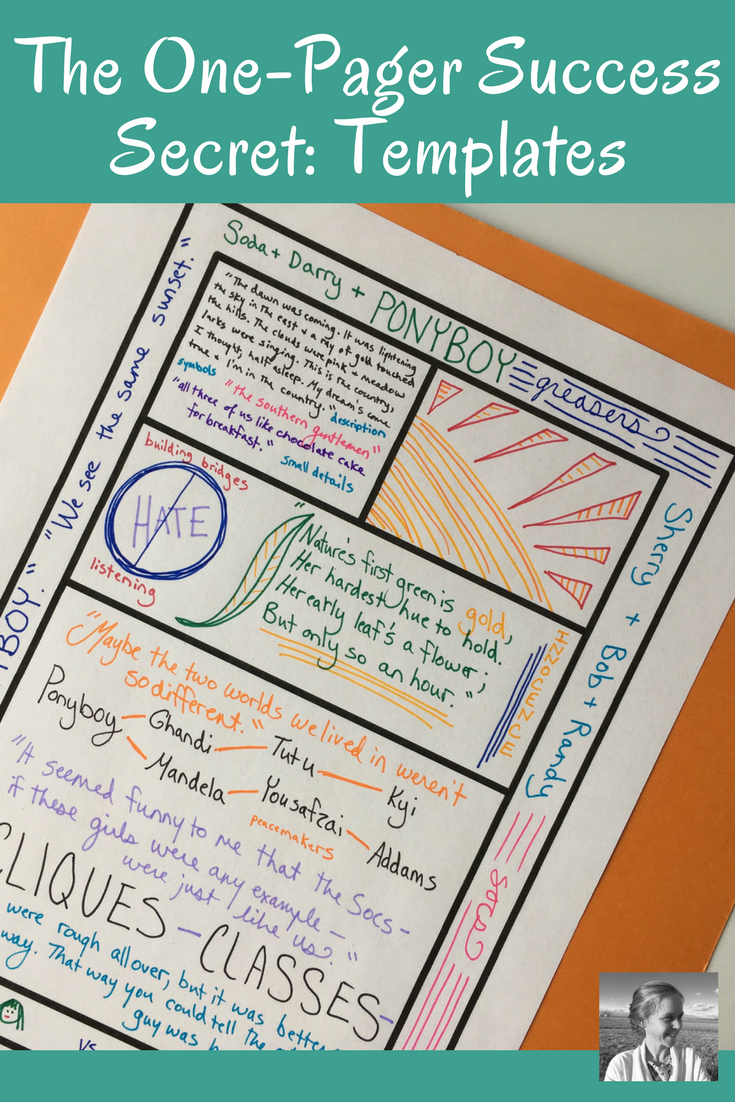 The One-Pager Success
Secret: Templates
Soda + Darry + PONYBOY
greasers
"We see the same sunset."
"The dawn was coming. It was lightening
the sky in the east & a ray of gold touched
the hills. The clouds were pink & meadow
larks were singing. This is the country,
I thought, half asleep. My dream's come
true & I'm in the country."
description
symbols
"the southern gentlemen"
"all three of us like chocolate cake
for breakfast."
small details
building bridges
HATE
listening
"Nature's first green is gold,
Her hardest hue to hold.
Her early leaf's a flower;
But only so an hour."
INNOCENCE
Sherry + Bob + Randy
socs
"Maybe the two worlds we lived in weren't
so different."
Ponyboy - Ghandi - Tutu - Kyi
Mandela - Yousafzai - Addams
peacemakers
"It seemed funny to me that the Socs -
if these girls were any example -
were just like us."
CLIQUES - CLASSES -
were rough all over, but it was better
way. That way you could tell the
guy was
vs